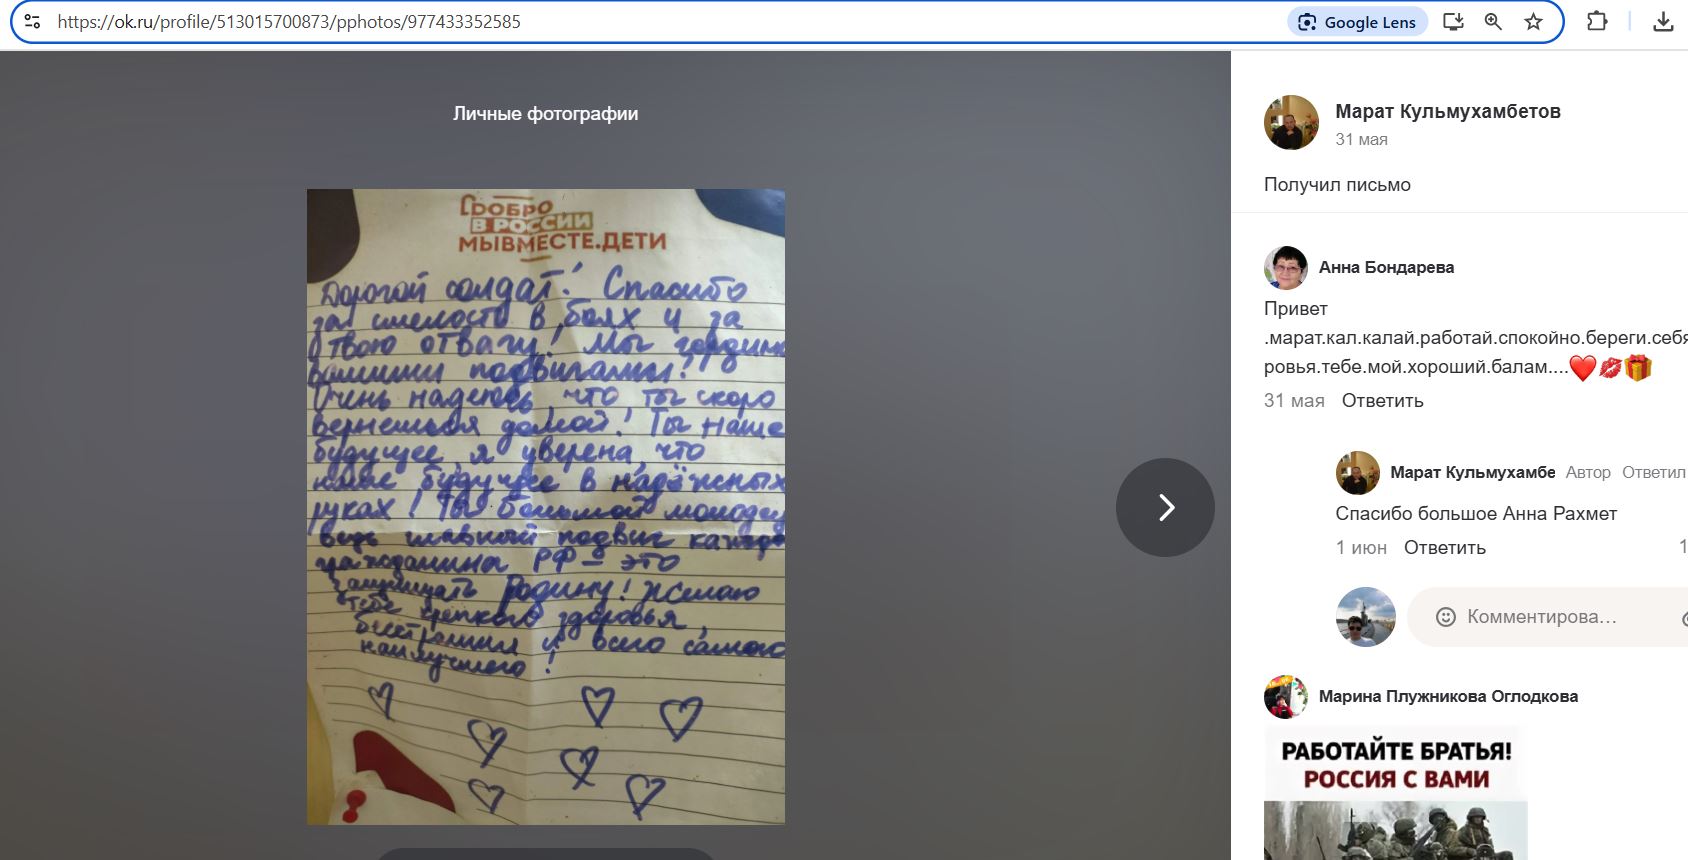 https://ok.ru/profile/513015700873/pphotos/977433352585
Google Lens
Личные фотографии
ДОБРО
В РОССИИ
МЫВМЕСТЕ.ДЕТИ
Дорогой солдат! Спасибо
за смелость в боях и за
твою отвагу! Мы гордимся
вашими подвигами!
Очень надеюсь, что ты скоро
вернешься домой! Ты наше
будущее, я уверена, что
наше будущее в надёжных
руках! Ты большой молодец,
ведь главный подвиг каждого
гражданина РФ – это
защищать Родину! Желаю
тебе крепкого здоровья,
и всего самого
наилучшего!
Марат Кульмухамбетов
31 мая
Получил письмо
Анна Бондарева
Привет
.марат.кал.калай.работай.спокойно.береги.себя
ровья.тебе.мой.хороший.балам....
31 мая Ответить
Марат Кульмухамбе Автор Ответил
Спасибо большое Анна Рахмет
1 июн Ответить
1
Комментирова...
Марина Плужникова Оглодкова
РАБОТАЙТЕ БРАТЬЯ!
РОССИЯ С ВАМИ